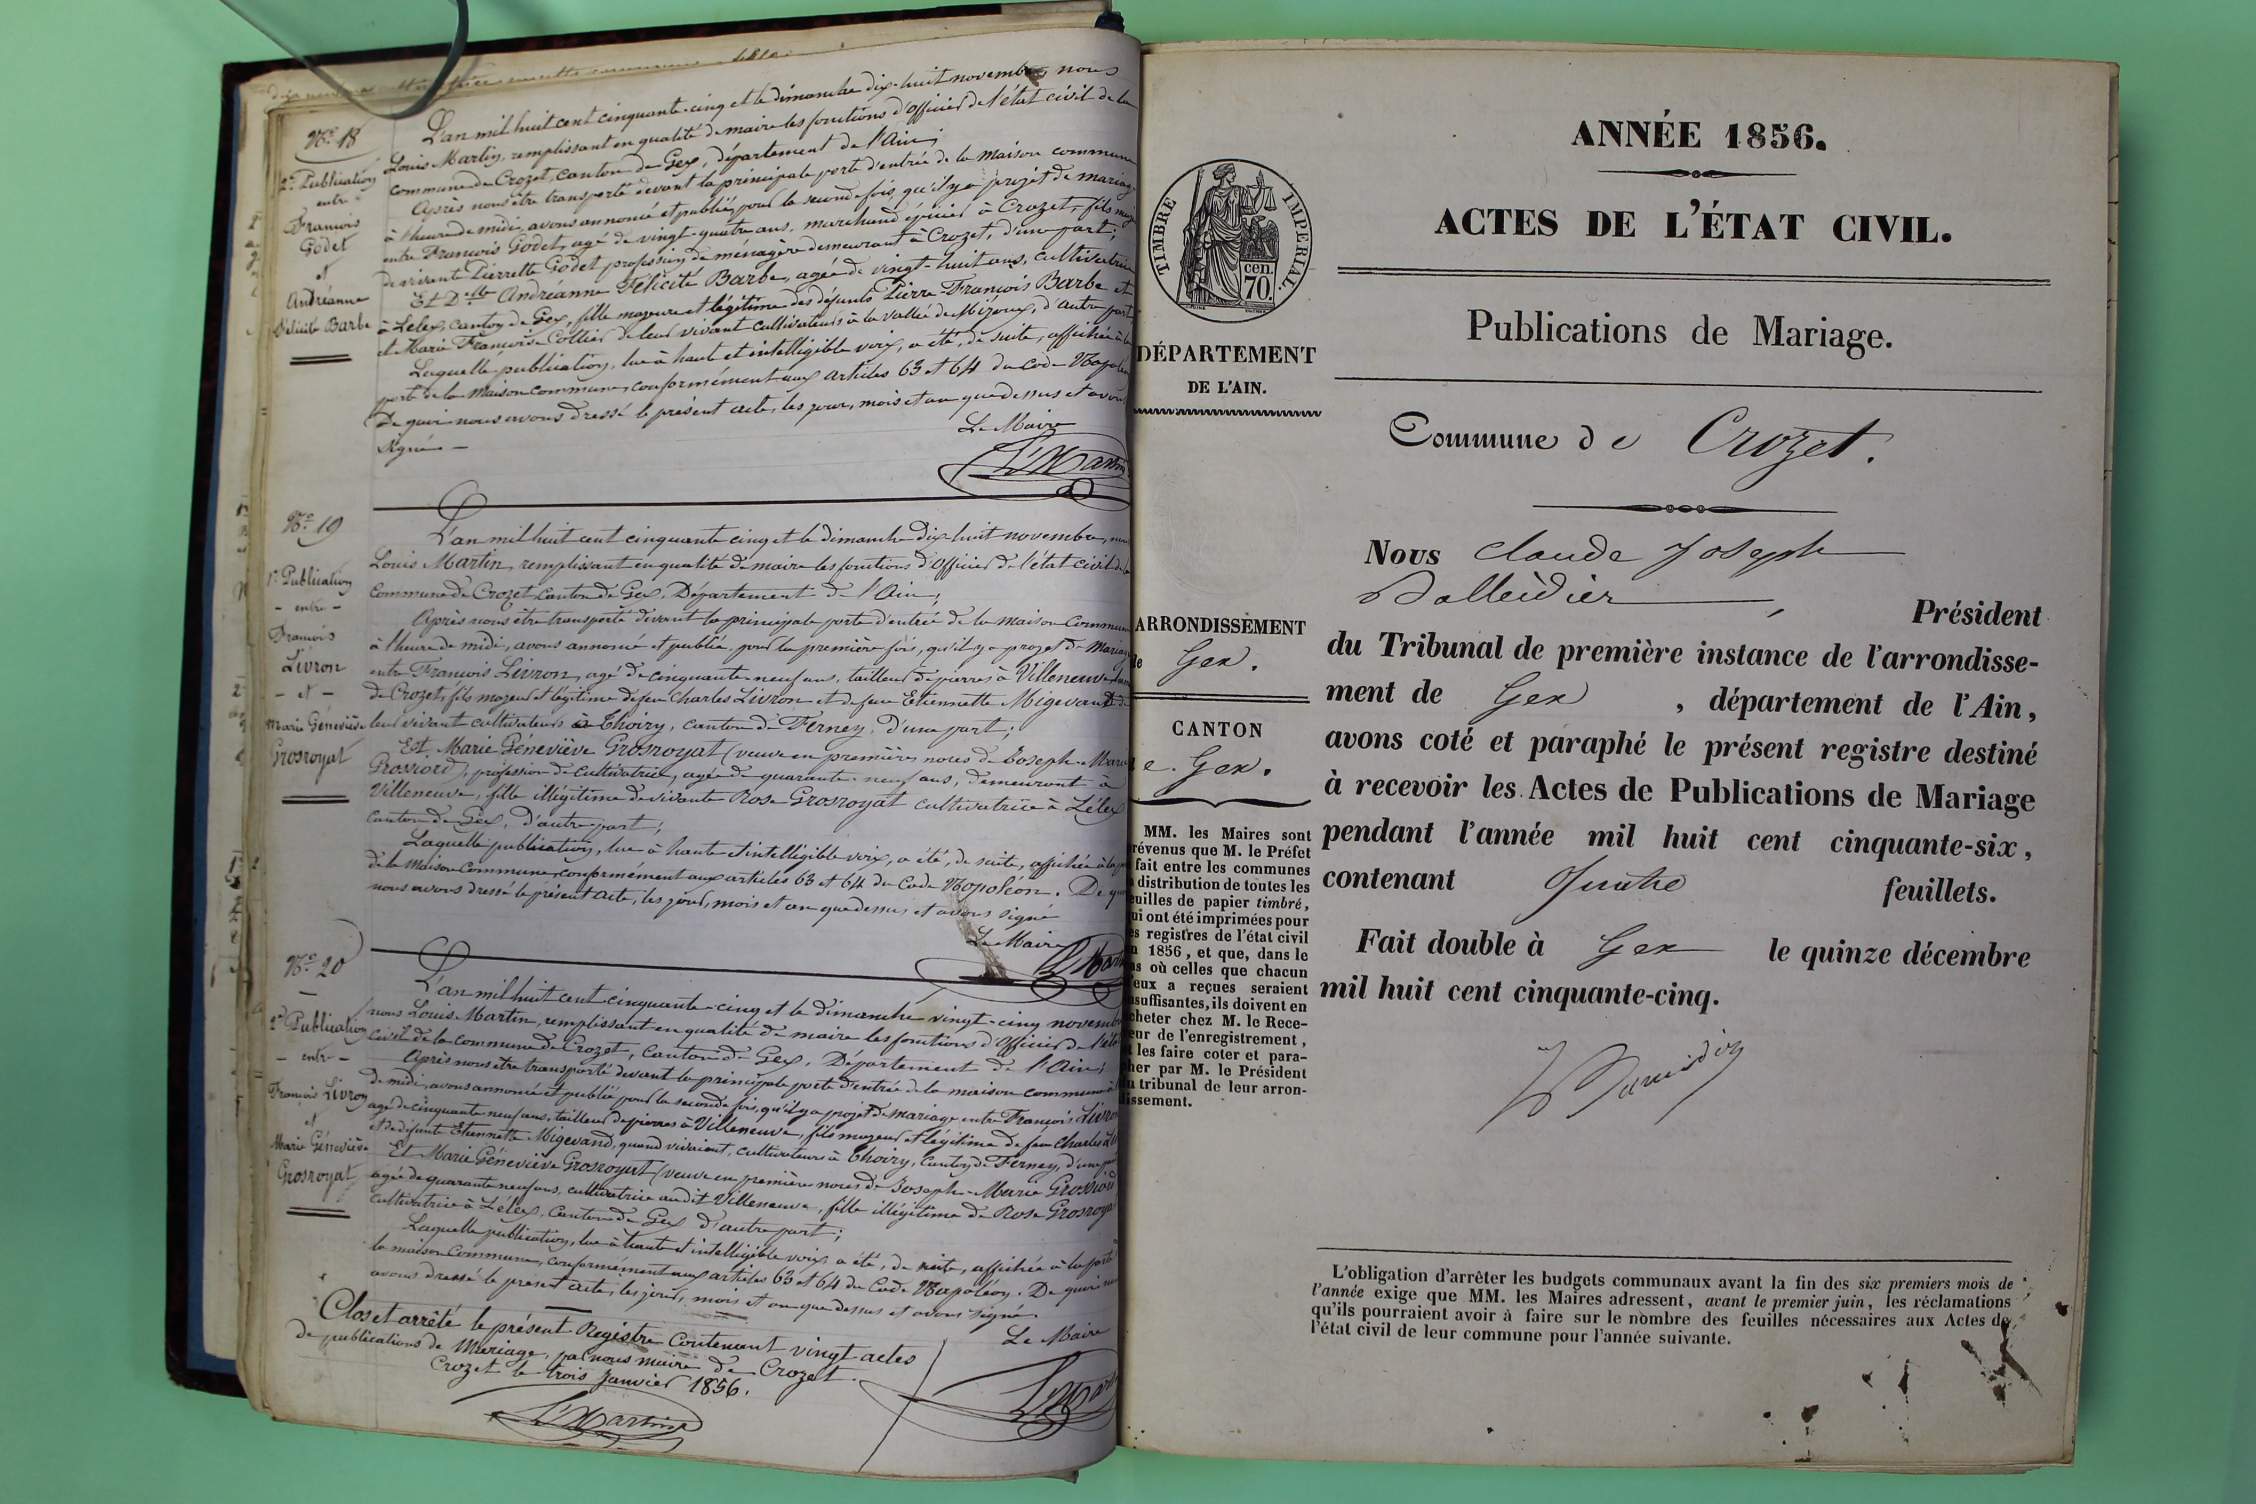 N° 18
2e Publication
entre
François
Godet
et
Andréanne
Félicité Barbe
L'an mil huit cent cinquante-cinq et le dimanche dix-huit novembre, nous
Louis Martin, remplissant en qualité de maire les fonctions d'officier de l'état civil de la
commune de Crozet, canton de Gex, département de l'Ain;
Après nous être transporté devant la principale porte d'entrée de la Maison commune
à l'heure de midi, avons annoncé et publié, pour la seconde fois, qu'il y a projet de mariage
entre François Godet, agé de vingt-quatre ans, marchand épicier à Crozet, fils
de vivent Pierrette Godet profession de ménagère demeurant à Crozet, d'une part;
Et Delle Andréanne Félicité Barbe, agée de vingt-huit ans, cultivatrice
à Lelex, canton de Gex, fille majeure et légitime des défunts Pierre-François Barbe et
et Marie Françoise Collier de leur vivant cultivateurs à la vallée de Mijoux, d'autre part
Laquelle publication, lue à haute et intelligible voix, a été, de suite, affichée à la
porte de la Maison commune, conformément aux articles 63 et 64 du Code Napoléon
De quoi nous avons dressé le présent acte, les jour, mois et an que dessus et avons
signé —
Le Maire
L. Martin
N° 19
1e Publication
- entre -
François
Livron
- et -
Marie Géneviève
Grosroyat
L'an mil huit cent cinquante cinq et le dimanche dix-huit novembre, nous
Louis Martin, remplissant en qualité de maire les fonctions d'officier de l'état civil de la
commune de Crozet, canton de Gex, Département de l'Ain;
Après nous être transporté devant la principale porte d'entrée de la maison commune
à l'heure de midi, avons annoncé et publié, pour la première fois, qu'il y a projet de Mariage
entre François Livron, agé de cinquante-neuf ans, tailleur de pierres à Villeneuve
de Crozet, fils majeur et légitime de feu Charles Livron et de feue Etiennette Migevand de
leur vivant cultivateurs à Thoiry, canton de Ferney, d'une part;
Et Marie Géneviève Grosroyat (veuve en premières noces de Joseph-Marie
Grossiord), profession de cultivatrice, agée de quarante-neuf ans, demeurant à
Villeneuve, fille illégitime de vivante Rose Grosroyat cultivatrice à Lélex
canton de Gex, d'autre part;
Laquelle publication, lue à haute et intelligible voix, a été, de suite, affichée à la
de la Maison commune, conformément aux articles 63 et 64 du Code Napoléon. De quoi
nous avons dressé le présent acte, les jour, mois et an que dessus, et avons signé
Le Maire
L. Martin
N° 20
2e Publication
- entre -
François Livron
et
Marie Géneviève
Grosroyat
L'an mil huit cent cinquante-cinq et le dimanche vingt-cinq novembre
nous Louis Martin, remplissant en qualité de maire les fonctions d'officier de l'état
civil de la commune de Crozet, canton de Gex, Département de l'Ain;
Après nous être transporté devant la principale porte d'entrée de la maison commune à
de midi, avons annoncé et publié pour la seconde fois, qu'il y a projet de mariage entre François Livron
agé de cinquante neuf ans, tailleur de pierres à Villeneuve, fils majeur et légitime de feu Charles
et de défunte Etiennette Migevand, quand vivaient, cultivateurs à Thoiry, canton de Ferney, d'une part
Et Marie Géneviève Grosroyat (veuve en première noces de Joseph-Marie Grossiord
agée de quarante neuf ans, cultivatrice audit Villeneuve, fille illégitime de Rose Grosroyat
cultivatrice à Lélex, canton de Gex d'autre part;
Laquelle publication, lue à haute et intelligible voix a été, de suite, affichée à la porte
la maison commune, conformément aux articles 63 et 64 du Code Napoléon. De quoi nous
avons dressé le présent acte, les jour, mois et an que dessus et avons signé.
Le Maire
L. Martin
Clos et arrêté le présent Registre contenant vingt actes
de publications de Mariage, par nous maire de Crozet.
Crozet le trois Janvier 1856.
L. Martin
ANNÉE 1856.
ACTES DE L'ÉTAT CIVIL.
TIMBRE IMPERIAL
cen.
70.
DÉPARTEMENT
DE L'AIN.
ARRONDISSEMENT
de Gex.
CANTON
de Gex.
MM. les Maires sont
prévenus que M. le Préfet
fait entre les communes
distribution de toutes les
feuilles de papier timbré,
qui ont été imprimées pour
es registres de l'état civil
n 1856, et que, dans le
as où celles que chacun
eux a reçues seraient
nsuffisantes, ils doivent en
cheter chez M. le Rece-
eur de l'enregistrement,
t les faire coter et para-
pher par M. le Président
u tribunal de leur arron-
dissement.
Publications de Mariage.
Commune de Crozet.
Nous Claude Joseph
Président
du Tribunal de première instance de l'arrondisse-
ment de Gex, département de l'Ain,
avons coté et paraphé le présent registre destiné
à recevoir les Actes de Publications de Mariage
pendant l'année mil huit cent cinquante-six,
contenant Quatre feuillets.
Fait double à Gex le quinze décembre
mil huit cent cinquante-cinq.
L'obligation d'arrêter les budgets communaux avant la fin des six premiers mois de
l'année exige que MM. les Maires adressent, avant le premier juin, les réclamations
qu'ils pourraient avoir à faire sur le nombre des feuilles nécessaires aux Actes de
l'état civil de leur commune pour l'année suivante.